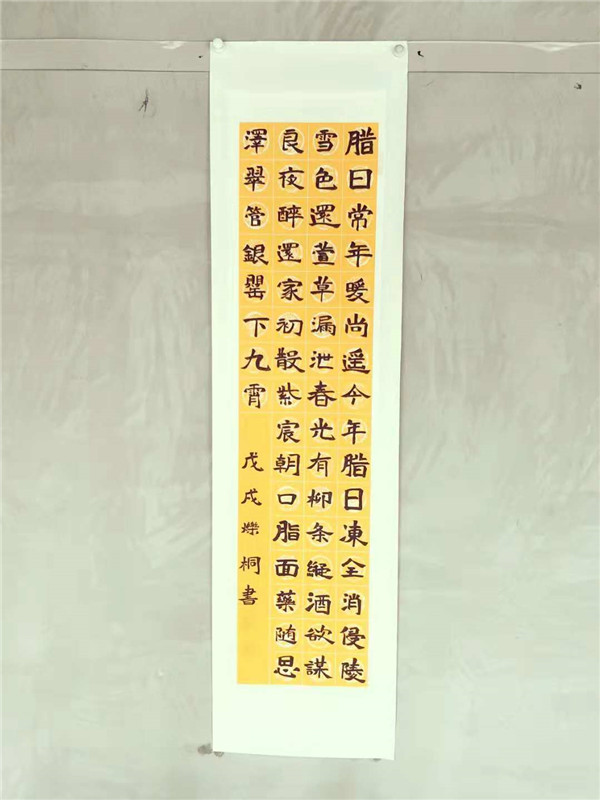 腊日常年暖尚遥今年腊日凍全消侵陵
雪色還萱草漏泄春光有柳条縱酒欲謀
良夜醉還家初散紫宸朝口脂面藥随恩
澤翠管銀罌下九霄
戊戌爍桐書